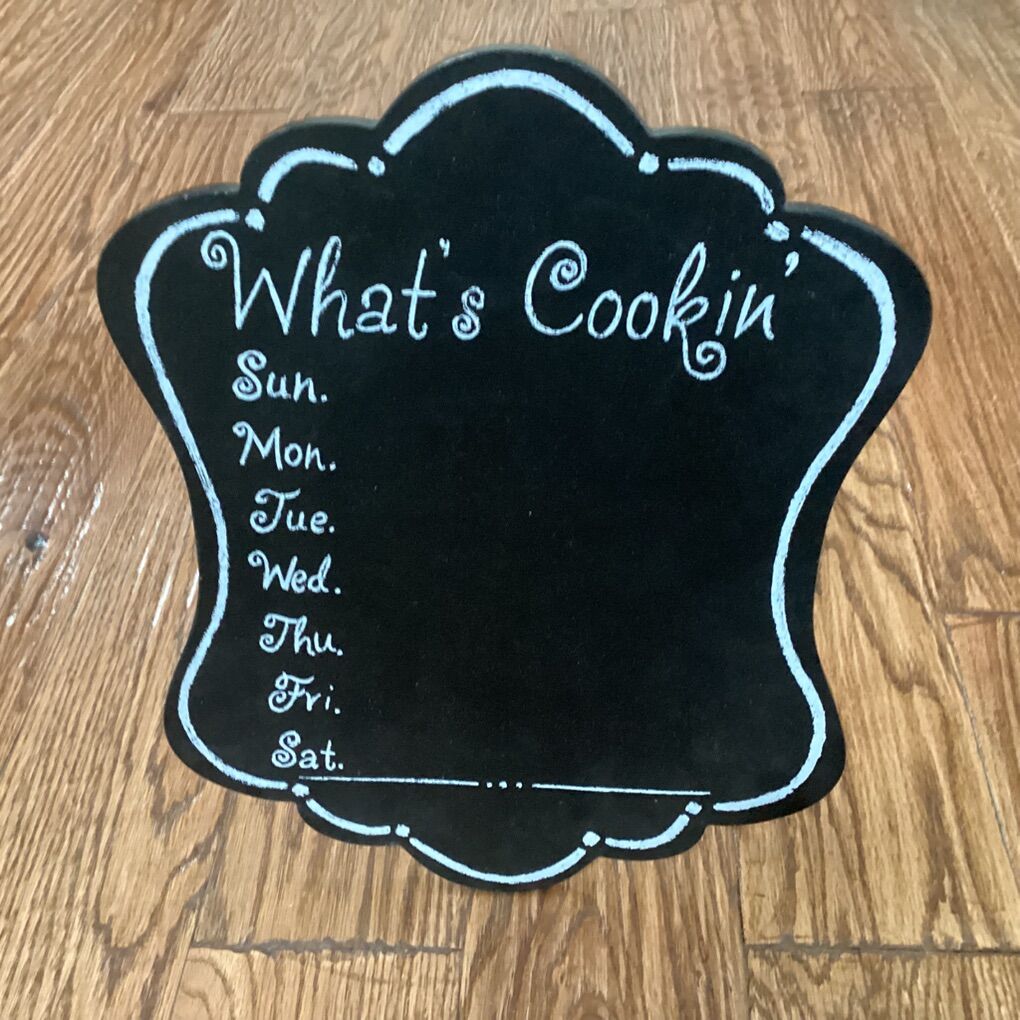 What's Cookin'
Sun.
Mon.
Tue.
Wed.
Thu.
Fri.
Sat.